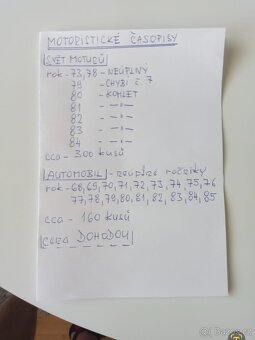 MOTORISTICKÉ ČASOPISY
SVĚT MOTORŮ
rok - 73,78 - NEÚPLNÝ
79 - CHYBÍ č. 7
80 - KOMLET
81 - —"—
82 - —"—
83 - —"—
84 - —"—
cca - 300 kusů
AUTOMOBIL - neúplné ročníky
rok - 68,69,70,71,72,73,74,75,76
77,78,79,80,81,82,83,84,85
cca - 160 kusů
CENA DOHODOU